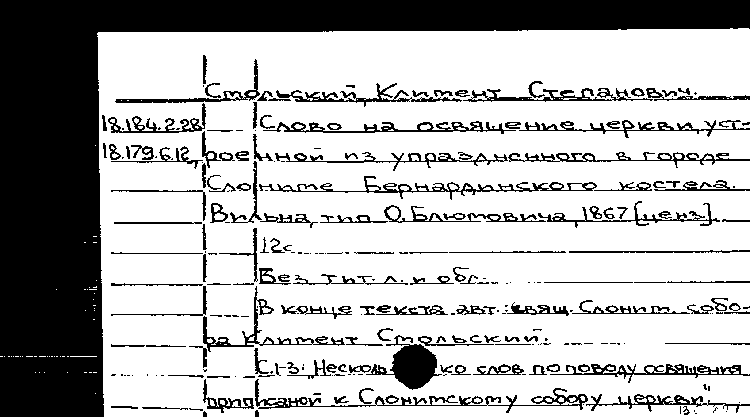 Смольский, Климент Степанович.
18.184.2.28 Слово на освящение церкви, уст-
18.179.6.12, роенной из упраздненного в городе
Слониме Бернардинского костела.
Вильна, тип О. Блюмовича, 1867 [ценз].
12с
Без тит. л. и обл.
В конце текста авт.: свящ. Слоним. собо-
ра Климент Смольский.
С.1-3: "Несколько слов по поводу освящения
приписной к Слонимскому собору церкви".